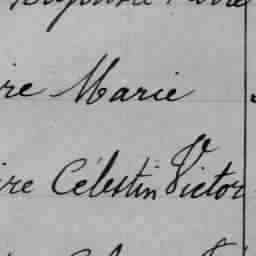 re Marie
ire Célestin Victor